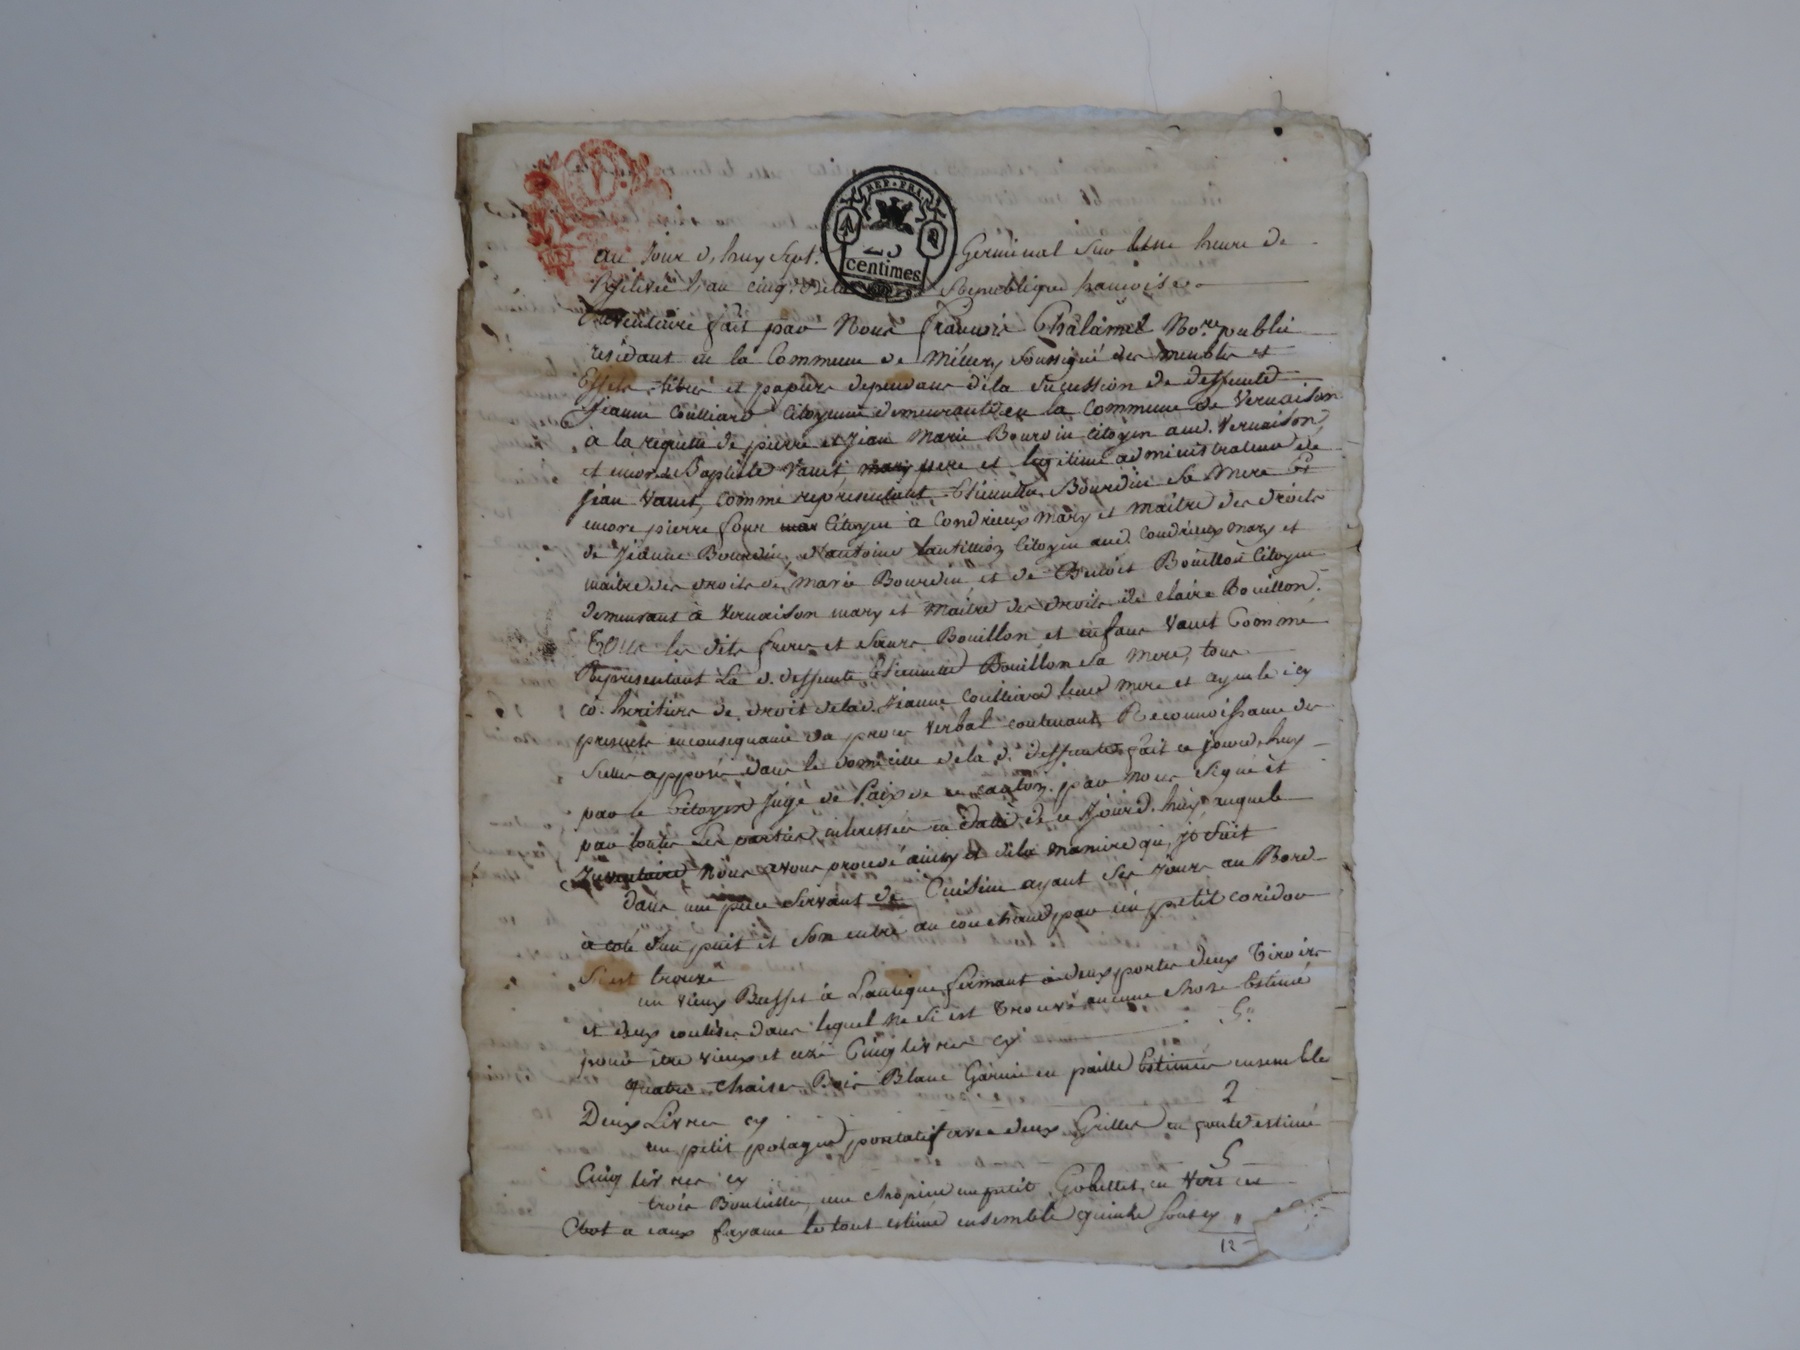 REP. FRA.
25
centimes
au Jour d'huy sept Germinal sur heure de
Relevée l'an cinq de la Republique francoise
Inventaire fait par Nous francois Chalamel No.re public
residant en la Commune de Millery soussigné des meubles et
Effets titres et papiers dependans de la sucession de deffunte
Jeanne Coulliard Citoyenne demeurante en la Commune de Vernaison
à la requette de pierre et Jean Marie Bourdin Citoyen aud. Vernaison
et encor de Baptiste Vanet pere et legitime administrateur de
Jean Vanet, comme representant Etiennette Bourdin sa Mere Et
encore pierre four Citoyen à Condrieux mary et maitre des droits
de Jeanne Bourdin, et antoine Citoyen aud. Condrieux mary et
maitre des droits de Marie Bourdin et de Benoit Bouillon Citoyen
demeurant à Vernaison mary et Maitre des droits de claire Bouillon.
Tous les dits freres et sœurs Bouillon et enfans Vanet Comme
Representant La d. deffunte Etiennette Bouillon sa Mere, tous
co. heritiers de droit de lad. Jeanne Coulliard leur mere et ayeule icy
presents en consequance du proces verbal contenant Reconnoissance des
scellés apposés dans le domicille de la d. deffunte fait ce jourd'huy
par le Citoyen Juge de Paix de ce canton par nous signé et
par toutes Les parties interessées en datte de ce Jourd. huy auquel
Inventaire Nous avons procedé ainsy et de la maniere qui
dans une piece servant de Cuisine ayant ses Jours au Bord
à coté d'un puit et son entré au couchand par un petit coridor
S'est trouvé
un vieux Buffet à L'antique fermant à deux portes deux Tiroirs
et deux coulises dans lequel ne si est Trouvé aucune chose Estimé
pour être vieux et uzé Cinq livres cy 5.
quatre chaises Bois Blanc Garnie en paille Estimés ensemble
Deux Livres cy 2
un petit potager portatif avec deux Grilles en fonte estimé
Cinq livres cy 5
trois Bouteilles une chopine un petit Gobellet en Verre un
pot a eaux fayance le tout estimé ensemble quinze sous cy "
12